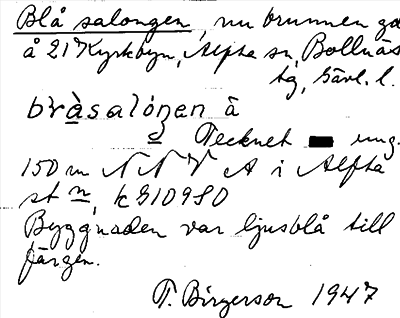 Blå salongen, nu brunnen gd
å 2¹ Kyrkbyn, Alfta sn, Bollnäs
tg, Gävl. l.
bràsalóṇen å
Tecknet ung.
150 m NNV A i Alfta
st n, k G109 S0
Byggnaden var ljusblå till
färgen.
T. Birgerson 1947